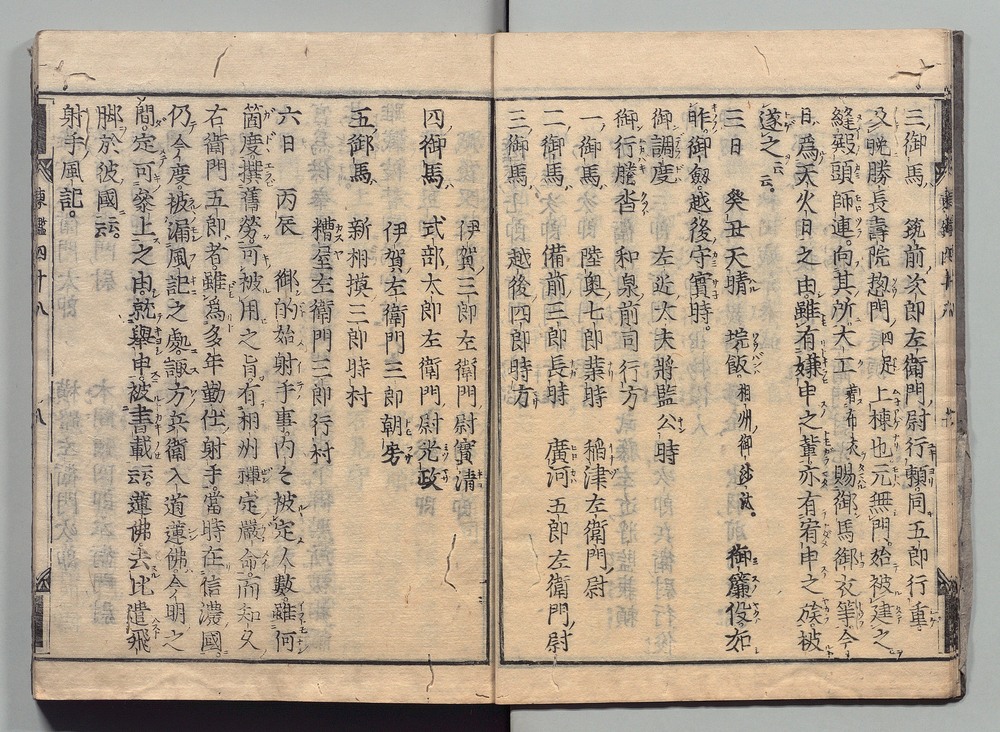 三御馬 筑前次郎左衛門尉行頼同五郎行重
及晩勝長壽院惣門四足上棟也元無門始被建之
縫殿頭師連向其所大工着布衣賜御馬御衣等今
日為天火日之由雖有嫌申之輩亦有宥申之族被
遂之云云
三日 癸丑天晴 垸飯相州御沙汰。 御簾役如
昨御劔越後守實時。
御調度 左近大夫將監公時
御行騰沓 和泉前司行方
一御馬 陸奥七郎業時 稲津左衛門尉
二御馬 備前三郎長時 廣河五郎左衛門尉
三御馬 越後四郎時方
伊賀次郎左衛門尉實清
四御馬 式部太郎左衛門尉光政
伊賀左衛門三郎朝房
五御馬 新相摸三郎時村
糟屋左衛門三郎行村
六日 丙辰 御的始射手事内々被定人數雖何
箇度撰舊勞可被用之旨有相州禪定嚴命而知久
右衛門五郎者雖為多年勤仕射手當時在信濃國
仍今度被漏風記之處諏方兵衛入道蓮佛今明之
間定可參上之由就擧申被書載云云蓮佛去比遣飛
脚於彼國云云
射手風記。
東鑑四十八 八